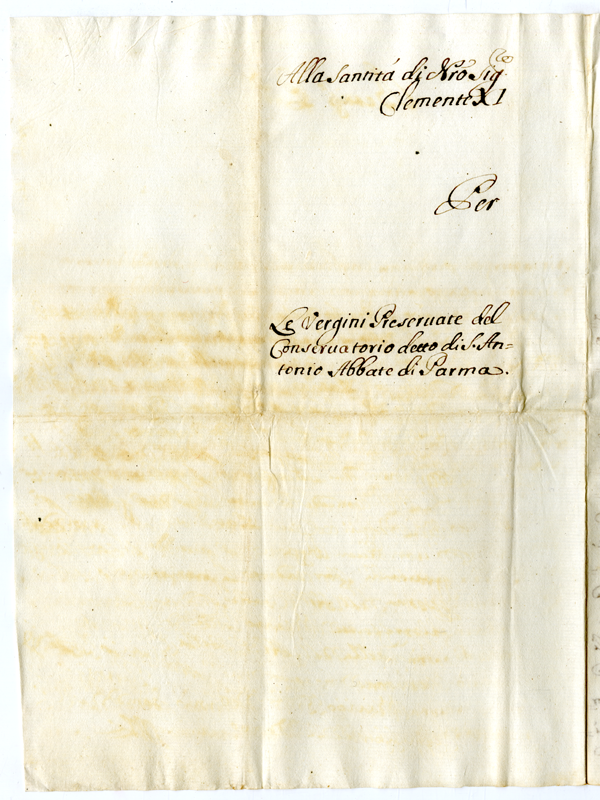 Alla Santitá di Nro Sig.re
Clemente XI
Per
Le Vergini Preseruate del
Conseruatorio detto di S. An=
tonio Abbate di Parma.